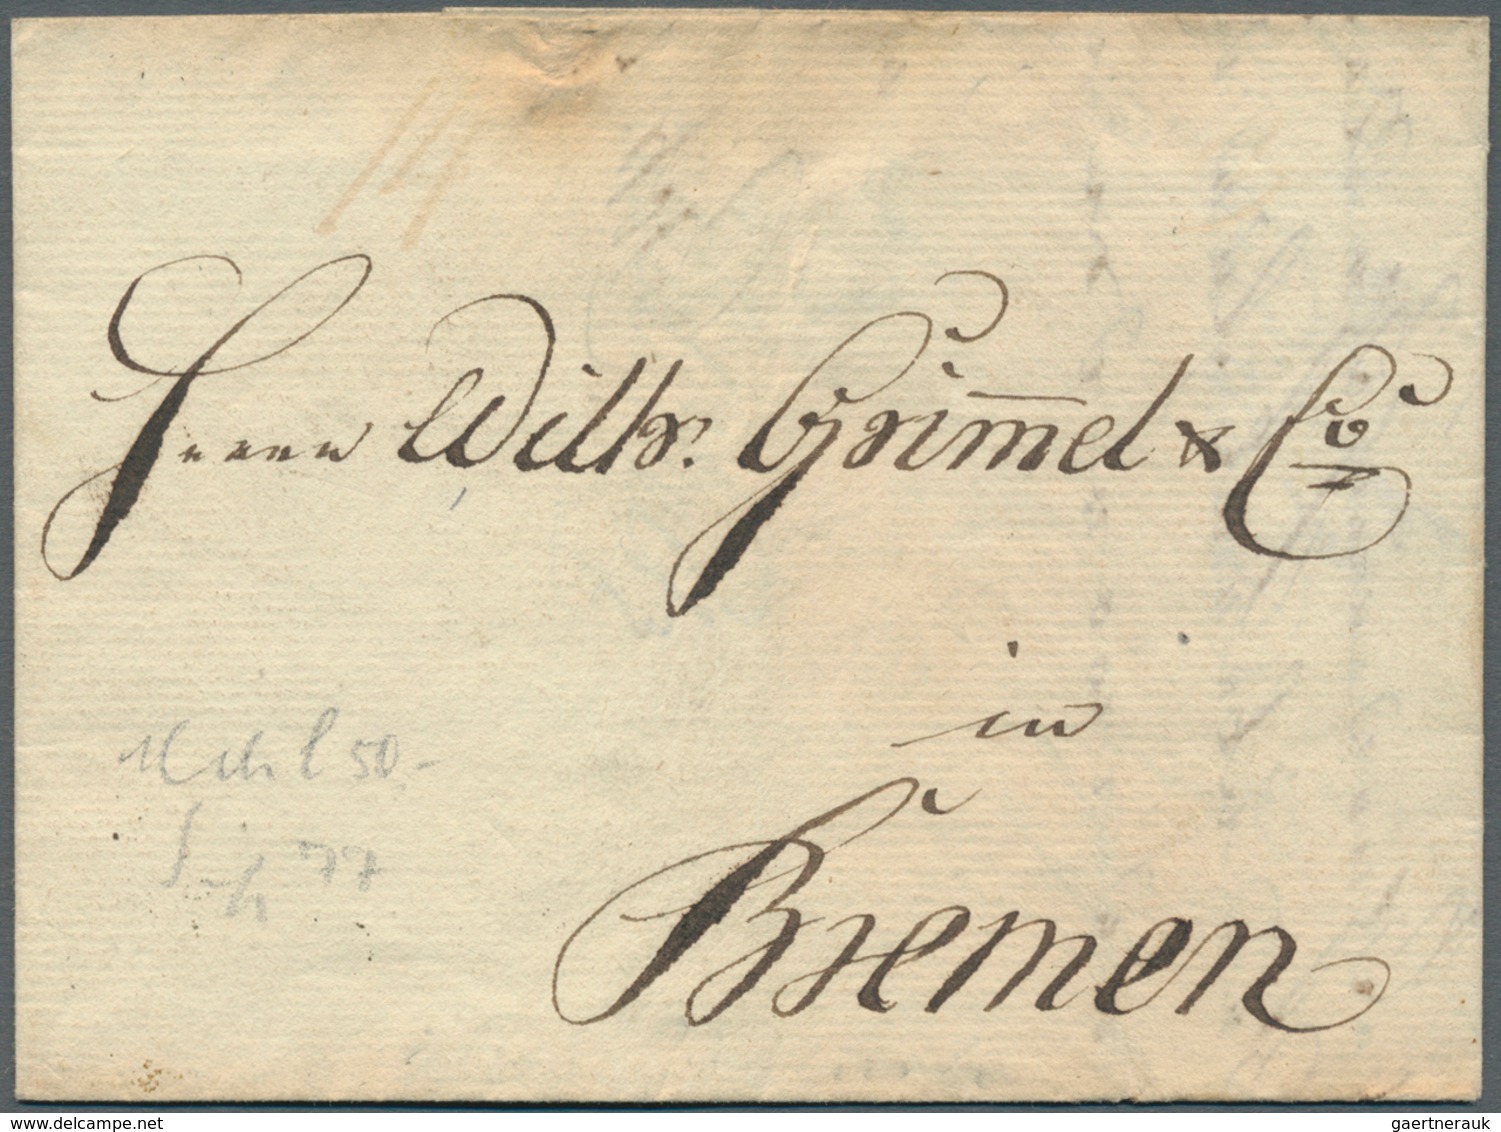 Herren Wilh: Grimmel & Co
in
Bremen
50.-
77
www.delcampe.net
gaertnerauk